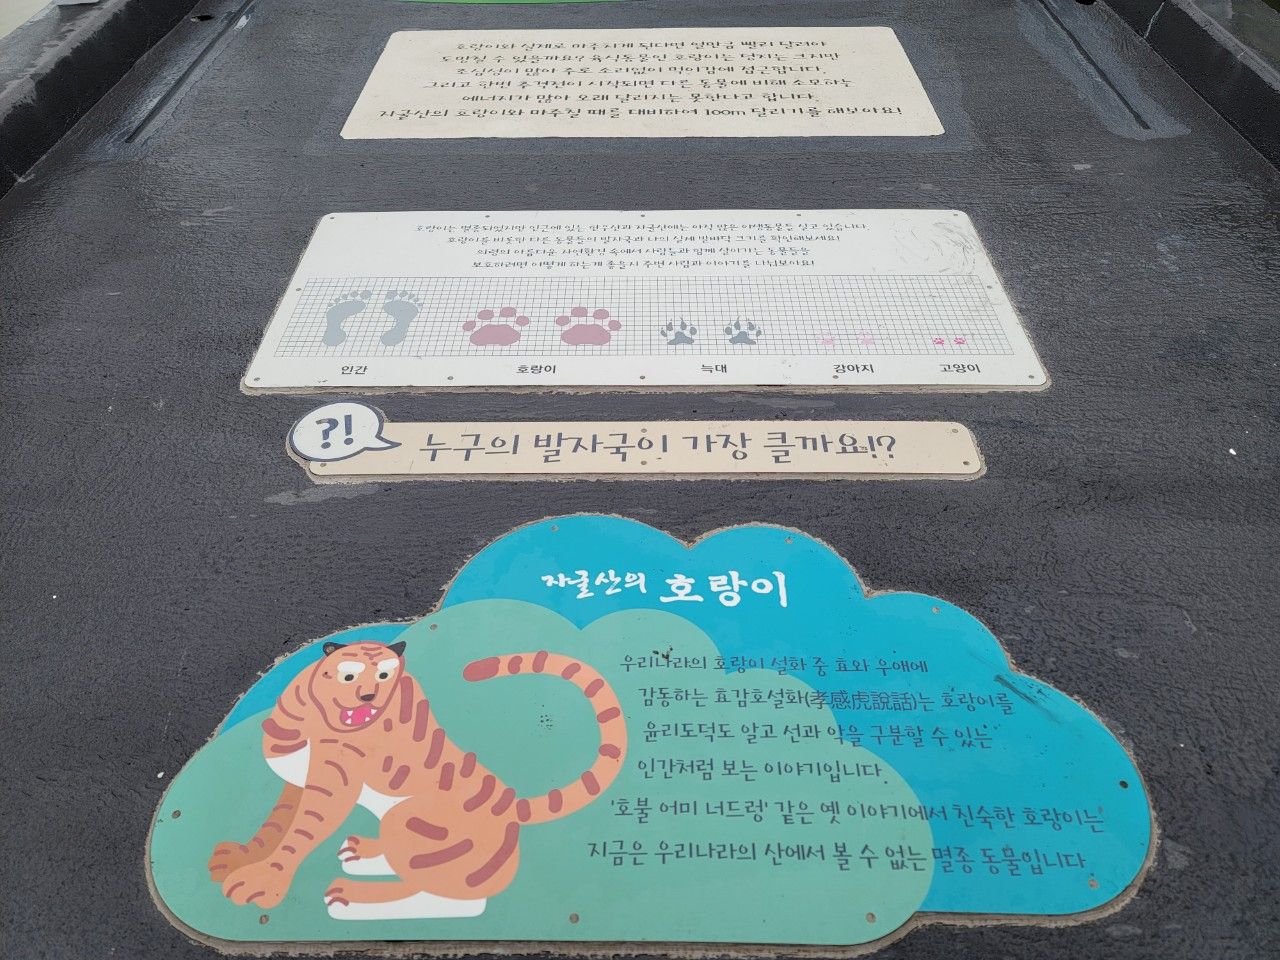 호랑이와 실제로 마주치게 된다면 얼만큼 빨리 달려야
도망칠 수 있을까요? 육식동물인 호랑이는 덩치는 크지만
조심성이 많아 주로 소리없이 먹이감에 접근합니다.
그리고 한번 추격전이 시작되면 다른 동물에 비해 소모하는
에너지가 많아 오래 달리지는 못한다고 합니다.
자굴산의 호랑이와 마주칠 때를 대비하여 100m 달리기를 해보아요!
호랑이는 멸종되었지만 인근에 있는 한우산과 자굴산에는 아직 많은 야생동물들 살고 있습니다.
호랑이를 비롯한 다른 동물들의 발자국과 나의 실제 발바닥 크기를 확인해보세요!
의령의 아름다운 자연환경 속에서 사람들과 함께 살아가는 동물들을
보호하려면 어떻게 하는게 좋을지 주변 사람과 이야기를 나눠보아요!
인간 호랑이 늑대 강아지 고양이
?! 누구의 발자국이 가장 클까요!?
자굴산의 호랑이
우리나라의 호랑이 설화 중 효와 우애에
감동하는 효감호설화(孝感虎說話)는 호랑이를
윤리도덕도 알고 선과 악을 구분할 수 있는
인간처럼 보는 이야기입니다.
'호불 어미 너드렁' 같은 옛 이야기에서 친숙한 호랑이는
지금은 우리나라의 산에서 볼 수 없는 멸종 동물입니다.